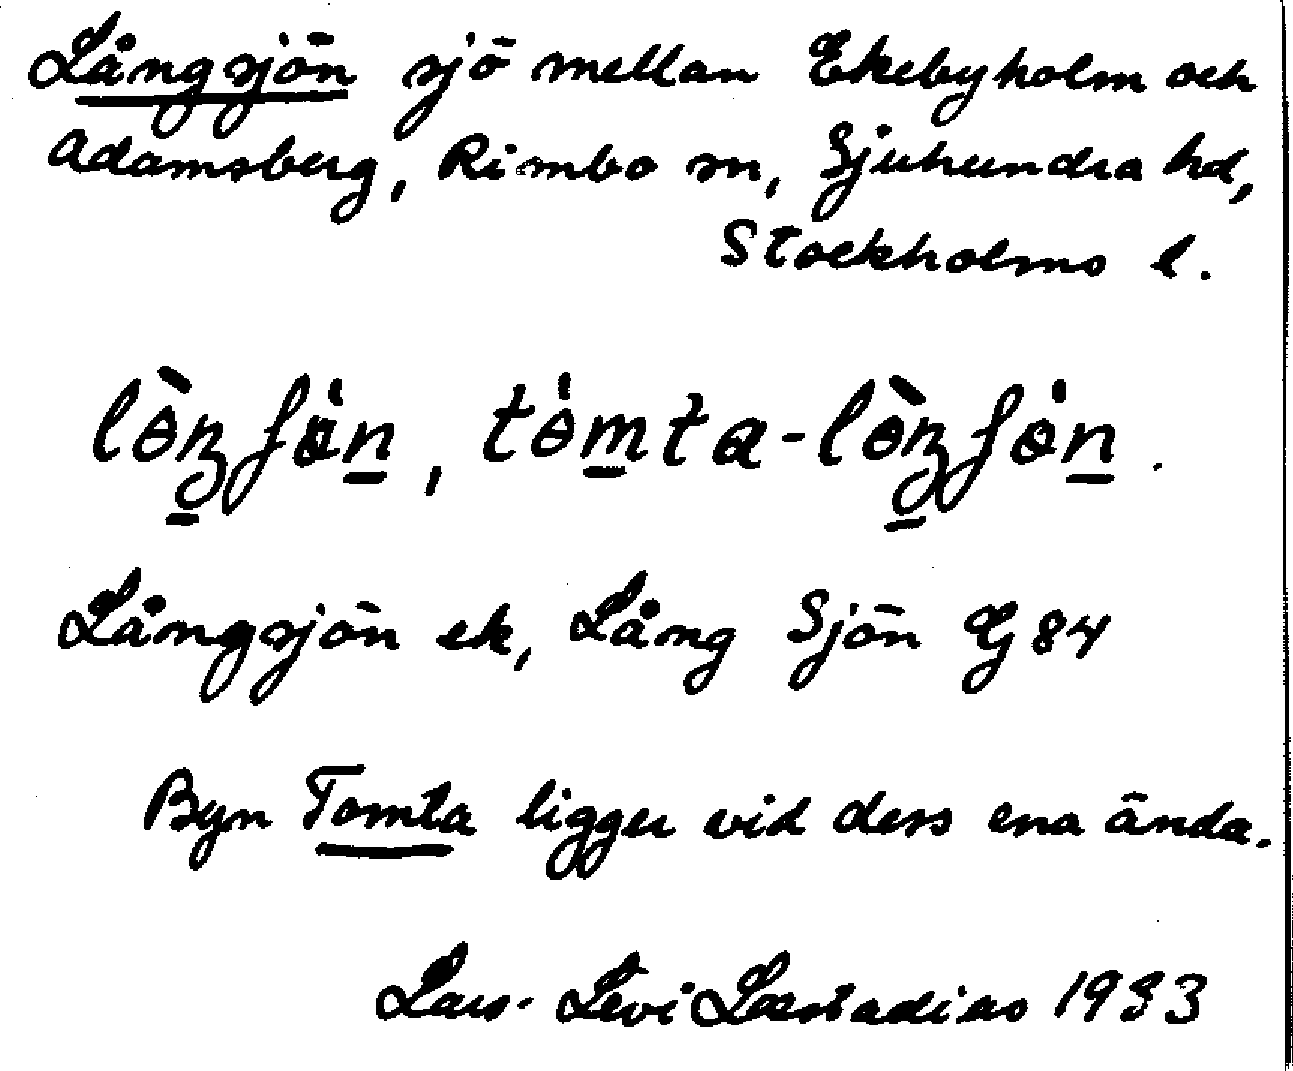 Långsjön sjö mellan Ekebyholm och
Adamsberg, Rimbo sn, Sjuhundra hd,
Stockholms l.
Långsjön ek, Lång Sjön G 84
Byn Tomta ligger vid dess ena ända.
Lars-Levi Læstadius 1933